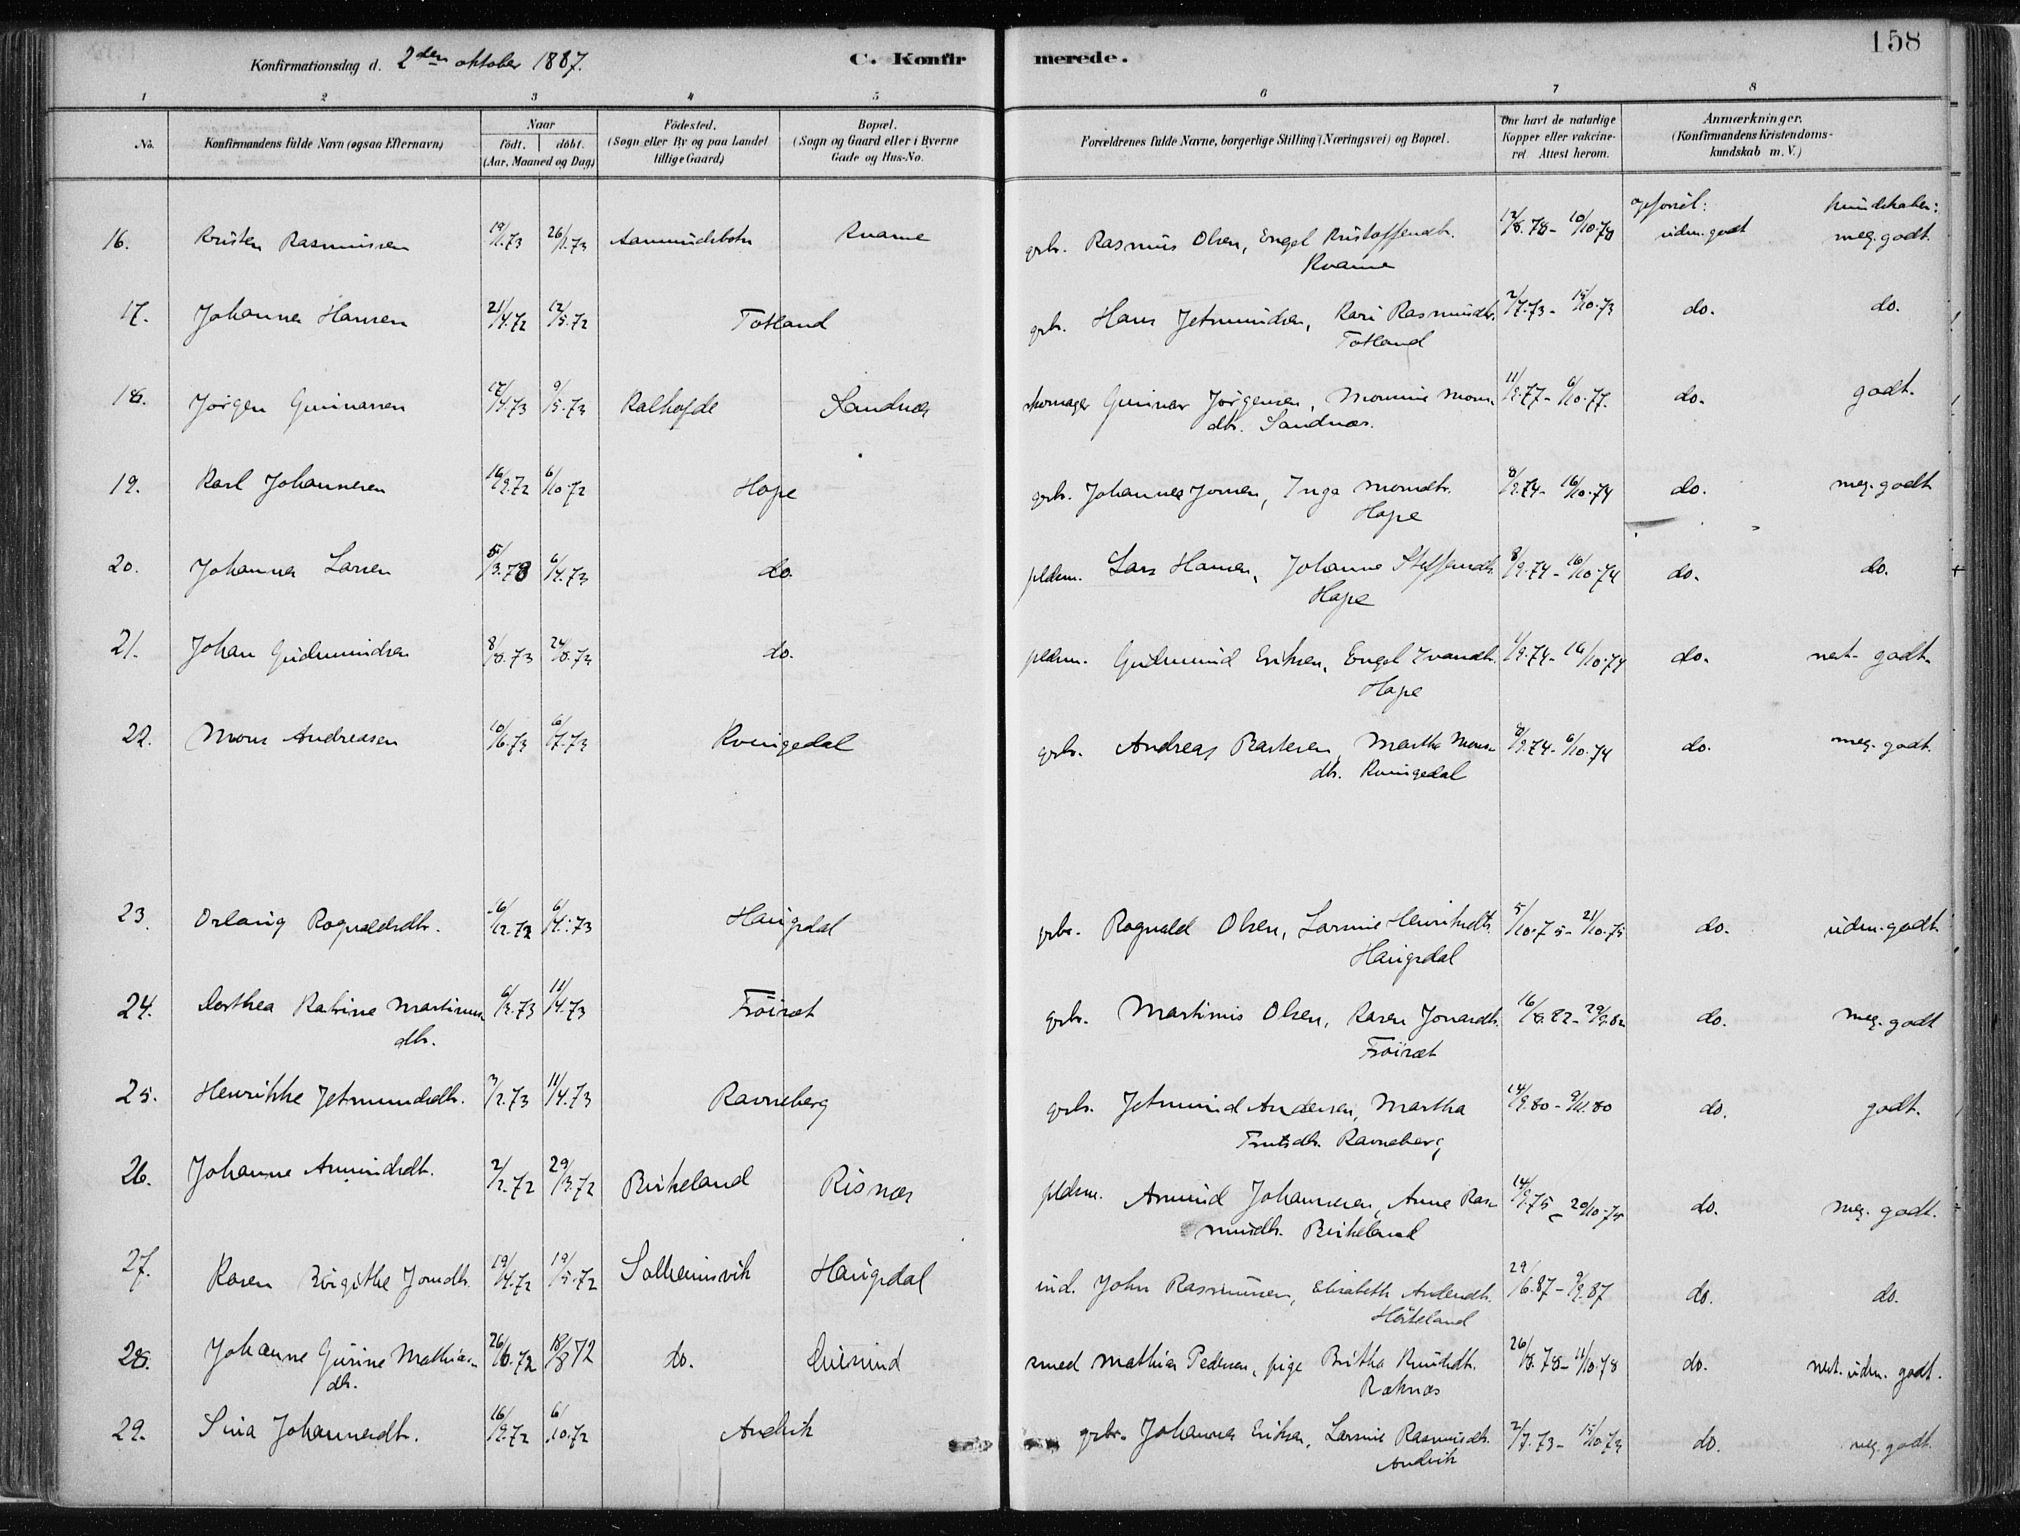 158
Konfirmationsdag d. 2den oktober 1887. C. Konfirmerede.
1 2 3 4 5 6 7 8
No. Konfirmandens fulde Navn (ogsaa Efternavn) Naar födt. döbt. (Aar, Maaned og Dag) Födested. (Sogn eller By og paa Landet tillige Gaard) Bopæl. (Sogn og Gaard eller i Byerne Gade og Hus-No. Forældrenes fulde Navne, borgerlige Stilling (Næringsvei) og Bopæl. Om havt de naturlige Kopper eller vakcineret Attest herom. Anmærkninger. (Konfirmandens Kristendomskundskab m. V.)
opførsel: kundskaber:
16. Kristen Rasmussen 19/11.73 26/11.73 Aamundsbotn Kvarme grbr. Rasmus Olsen, Engel Kristoffersdtr. 12/8.78 - 10/10.78 udm. godt meg. godt.
Kvamme
17. Johannes Hansen 21/4.72 12/5.72 Totland grbr. Hans Jetmundsen, Kari Rasmusdtr. 2/7.73 - 15/10.73 do. do.
Totland
18. Jørgen Gunnarsen 17/4.73 9/5.73 Kalhofde Sandnæs skomager Gunnar Jørgensen, Monsine Mons- 11/9.77 - 6/10.77. do. godt.
dtr. Sandnæs.
19. Karl Johannesen 16/9.72 6/10.72 Hope grbr. Johannes Jonsen, Inga Monsdtr. 8/9.74 - 16/10.74 do. meg. godt
Hope
20. Johannes Larsen 5/3.73 6/4.73 do. pldsm. Lars Hansen, Johanne Steffensdtr. 8/9.74 - 16/10.74 do. do.
Hope
21. Johan Gudmundsen 8/8.73 24/8.73 do. pldsm. Gudmund Eriksen, Engel Ivarsdtr. 8/9.74 - 16/10.74 do. nest. godt.
Hope
22. Mons Andreasen 10/6.73 6/7.73 Kvingedal grbr. Andreas Bastesen, Martha Mons- 8/9.74 - 6/10.74 do. meg. godt.
dtr. Kvingedal
23. Orlaug Rognaldsdtr. 16/12.72 6/4.73 Haugsdal grbr. Rognald Olsen, Larsine Henriksdtr. 5/10.75 - 21/10.75 do. udm. godt
Haugsdal
24. Dorthea Katrine Martinus- 6/3.73 11/4.73 Frøiset grbr. Martinus Olsen, Karen Jonasdtr. 16/8.82 - 29/9.82 do. meg. godt
dtr. Frøiset
25. Henrikke Jetmundsdtr. 3/2.73 11/4.73 Ravneberg grbr. Jetmund Andersen, Martha 14/9.80 - 9/11.80 do. godt.
Ravneberg
26. Johanne Amundsdtr. 2/2.72 29/3.72 Birkeland Risnæs pldsm. Amund Johannesen, Anne Ras- 14/9.75 - 20/10.75 do. meg. godt.
musdtr. Birkeland
27. Karen Birgithe Jonsdtr. 19/4.72 19/5.72 Solheimsvik Haugsdal ind. John Rasmussen, Elisabeth Andersdtr. 29/6.87 - 9/9.87 do. do.
28. Johanne Gurine Mathias- 26/6.72 18/8 72 do. smed Mathias Pedersen, pige Britha Knudsdtr. 26/8.78 - 11/10.78 do. nest. udm. godt.
dtr. Røknæs
29. Sina Johannesdtr. 16/9.72 6/10.72 Andvik grbr. Johannes Eriksen, Larsine Rasmusdtr. 2/7.73 - 15/10.73 do. meg. godt.
Andvik